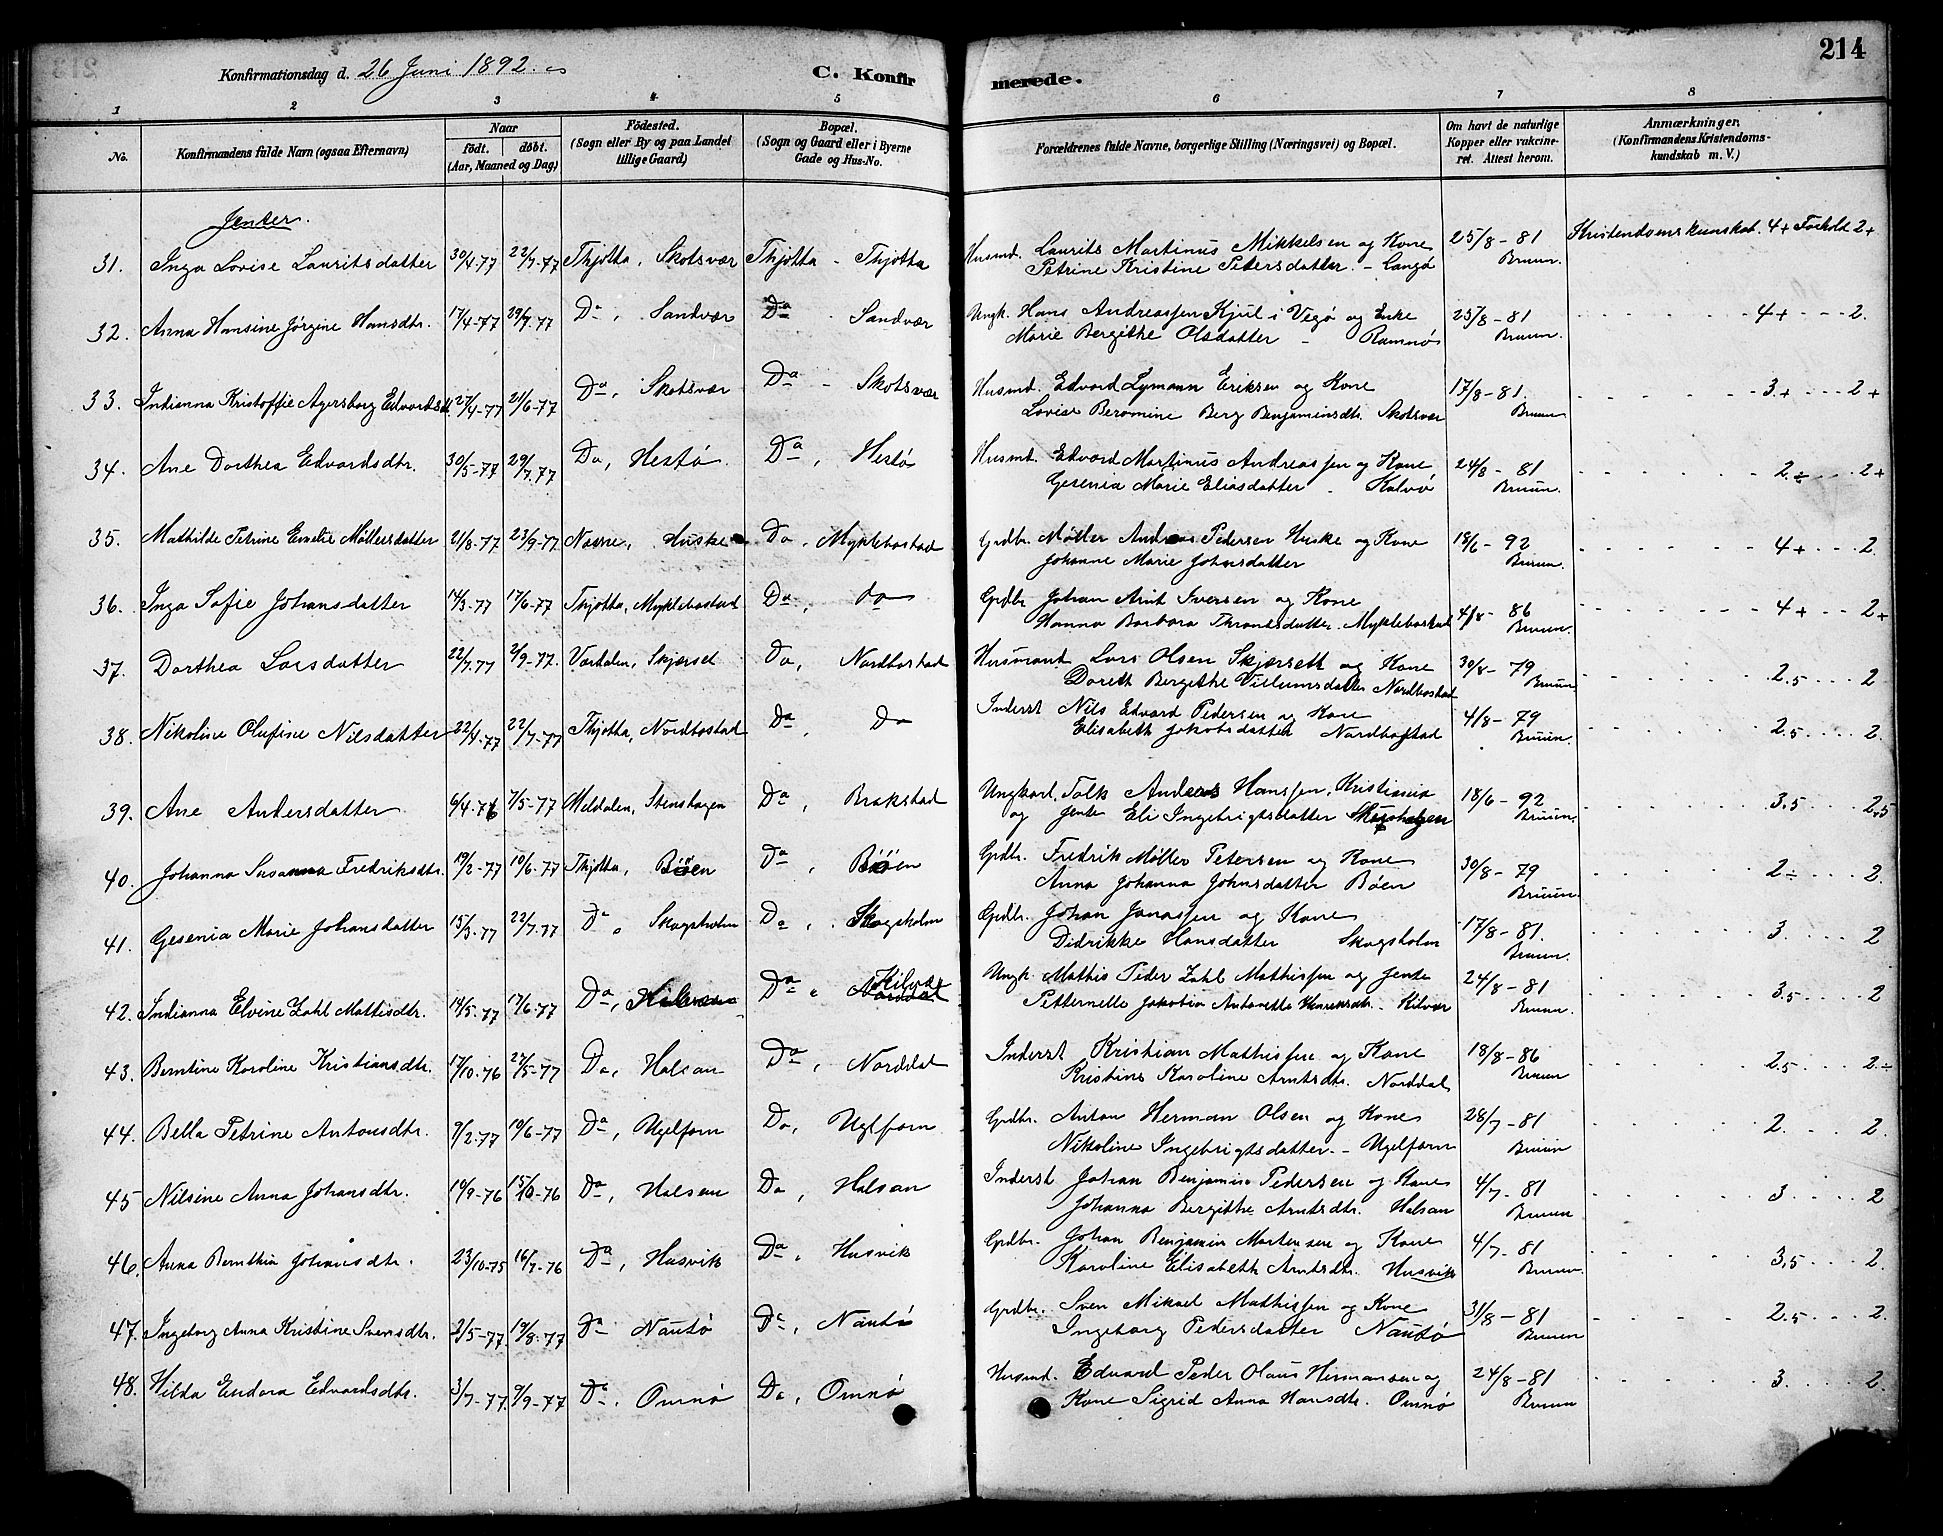 214
Konfirmationsdag d. 26 Juni 1892.
C. Konfirmerede.
1 2 3 4 5 6 7 8
No. Konfirmandens fulde Navn (ogsaa Efternavn) Naar født. døbt. (Aar, Maaned og Dag) Fødested. (Sogn eller By og paa Landet tillige Gaard) Bopæl. (Sogn og Gaard eller i Byerne Gade og Hus-No. Forældrenes fulde Navne, borgerlige Stilling (Næringsvei) og Bopæl. Om havt de naturlige Kopper eller vaccineret. Attest herom. Anmærkninger. (Konfirmandens Kristendomskundskab m. V.)
Jenter.
31. Inga Lovise Lauritsdatter 30/4-77 22/7-77 Thjøtta, Skotsvær Thjøtta - Thjøtta Husmd. Laurits Martinus Mikkelsen og Kone 25/8-81 Kristendomskunskab. 4+ Forhold 2+
Petrine Kristine Petersdatter. - Langø Bruun.
32. Anna Hansine Jørgine Hansdtr. 17/4-77 29/7-77 Da, Sandvær Da - Sandvær Ungk. Hans Andreassen Kjul i Vegø og Enke 25/8-81 4+ 2.
Marie Bergithe Olsdatter - Ramnøs Bruun.
33. Indianna Kristoffie Agersborg Edvardsdt. 27/4-77 21/6-77 Da, Skotsvær Da - Skotsvær Husmd. Edvard Lymann Eriksen og Kone 17/8-81. 3+ 2+
Lovise Beromine Berg Benjaminsdtr. Skotsvær Bruun
34. Ane Dorthea Edvardsdtr. 30/5-77 29/7.77 Da, Hestø. Da, Hestø Husmd. Edvard Martinus Andreassen og Kone 24/8-81 2÷ 2+
Gesenia Marie Eliasdatter - Kalvø Bruun.
35. Mathilde Petrine Emelie Møllersdatter 21/8-77 23/9-77 Nesne, Huske Da, Myklebostad Grdbr. Møller Andreas Pedersen Huske og Kone 18/6-92 4+ 2.
Johanne Marie Johnsdatter Bruun.
36. Inga Sofie Johansdatter 14/3-77 17/6-77 Thjøtta, Myklebostad Da, do Grdbr Johan Arnt Iversen og Kone 4/8-86 4+ 2+
Hanna Barbara Thrantsdatter. Myklebostad Bruun.
37. Dorthea Larsdatter 22/7.77 2/9-77. Værdalen, Skjærset Da, Nordbostad Husmand Lars Olsen Skjærseth og Kone 30/8-79 2.5 2
Doreth Bergethe Villumsdatter Nordbostad Bruun
38. Nikoline Olufine Nilsdatter 22/4-77 22/7-77 Thjøtta, Nordbostad Da, Do Inderst Nils Edvard Pedersen og Kone 4/8-79 2.5 2.
Elisabeth Jakobsdatter Nordbostad Bruun.
39. Ane Andersdatter 6/4-76 7/5-77 Meldalen, Stenshagen Da, Brakstad Ungkarl. Falk Anders Hanssen, Kristiania 18/6-92 3.5 2.5
og Jente Eli Ingebrigtsdatter Bruun.
40. Johanna Susanna Fredriksdtr. 19/2-77 10/6-77 Thjøtta, Bøen Da, Bøen Grdbr. Fredrik Møller Petersen og Kone 30/8-79 2÷ 2.
Anna Johanna Johnsdatter Bøen Bruun.
41. Gesenia Marie Johansdatter 15/3-77 22/7.77 Da, Skogsholm Da, Skogsholm Grdbr. Johan Jonassen og Kone 17/8-81. 3. 2
Didrikke Hansdatter Skogsholm Bruun.
42. Indianna Elvine Zahl Mattisdtr. 19/5-77 17/6-77 Da, Kilvær Da, Norddal Kilvær Ungk. Mathis Peder Zahl Mathissen og Jente 24/8-81 3.5 2
Petternelle Jakobia Antonette Henriksdtr. - Kilvær Bruun.
43. Berntine Karoline Kristiansdtr. 17/10-76 27/5-77 Da, Halsan Da, Norddal Inderst Kristian Mathissen og Kone 18/8-86 2.5 2÷
Kristine Karoline Arntsdtr. Norddal Bruun
44. Bella Petrine Antonsdtr. 9/2-77 10/6-77 Da, Uglfarn Da, Uglfarn Grdbr. Anton Herman Olsen og Kone 28/7-81 2. 2.
Nikoline Ingebrigtsdatter. - Uglfarn Bruun
45 Nilsine Anna Johansdtr. 19/9-76 15/10-76 Da, Halsan Da, Halsan Inderst Johan Benjamin Pedersen og Kone 4/7-81 3 2
Johanna Bergithe Arntsdtr. Halsan Bruun
46. Anna Bernthia Johansdtr. 23/10-75 16/7-76 Da, Husvik Da, Husvik Grdbr. Johan Benjamin Mortensen og Kone 4/7-81 3.5 2.
Karoline Elisabeth Arntsdtr. Husvik Bruun.
47. Ingeborg Anna Kristine Svensdtr. 2/5-77 19/8-77 Da Nautø Da, Nautø Grdbr. Sven Mikael Mathissen og Kone 31/8-81 2.5 2.
Ingeborg Pedersdatter Nautø Bruun
48. Hilda Endora Edvardsdtr. 3/7-77. 9/9-77 Da, Omnø Da, Omnø Husmd. Edvard Peder Olaus Hermansen og 24/8-81 3. 2.
Kone Sigrid Anna Hansdtr. Omnø Bruun